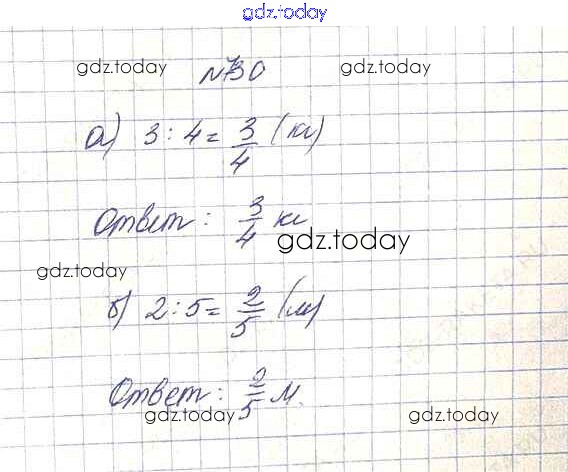 gdz.today
gdz.today №730 gdz.today
а) 3 : 4 = 3/4 (кг)
Ответ : 3/4 кг
gdz.today
gdz.today
б) 2 : 5 = 2/5 (м)
Ответ : 2/5 м.
gdz.today gdz.today